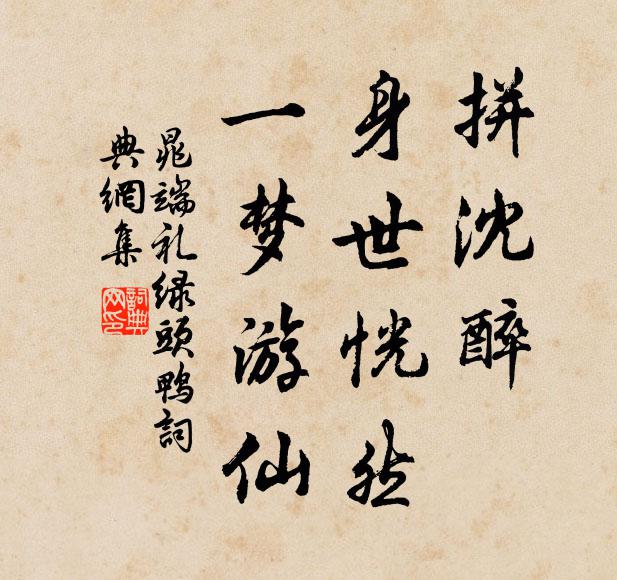 拼沈醉
身世恍然
一梦游仙
晁端礼绿頭鸭詞
典網集
詞典网印